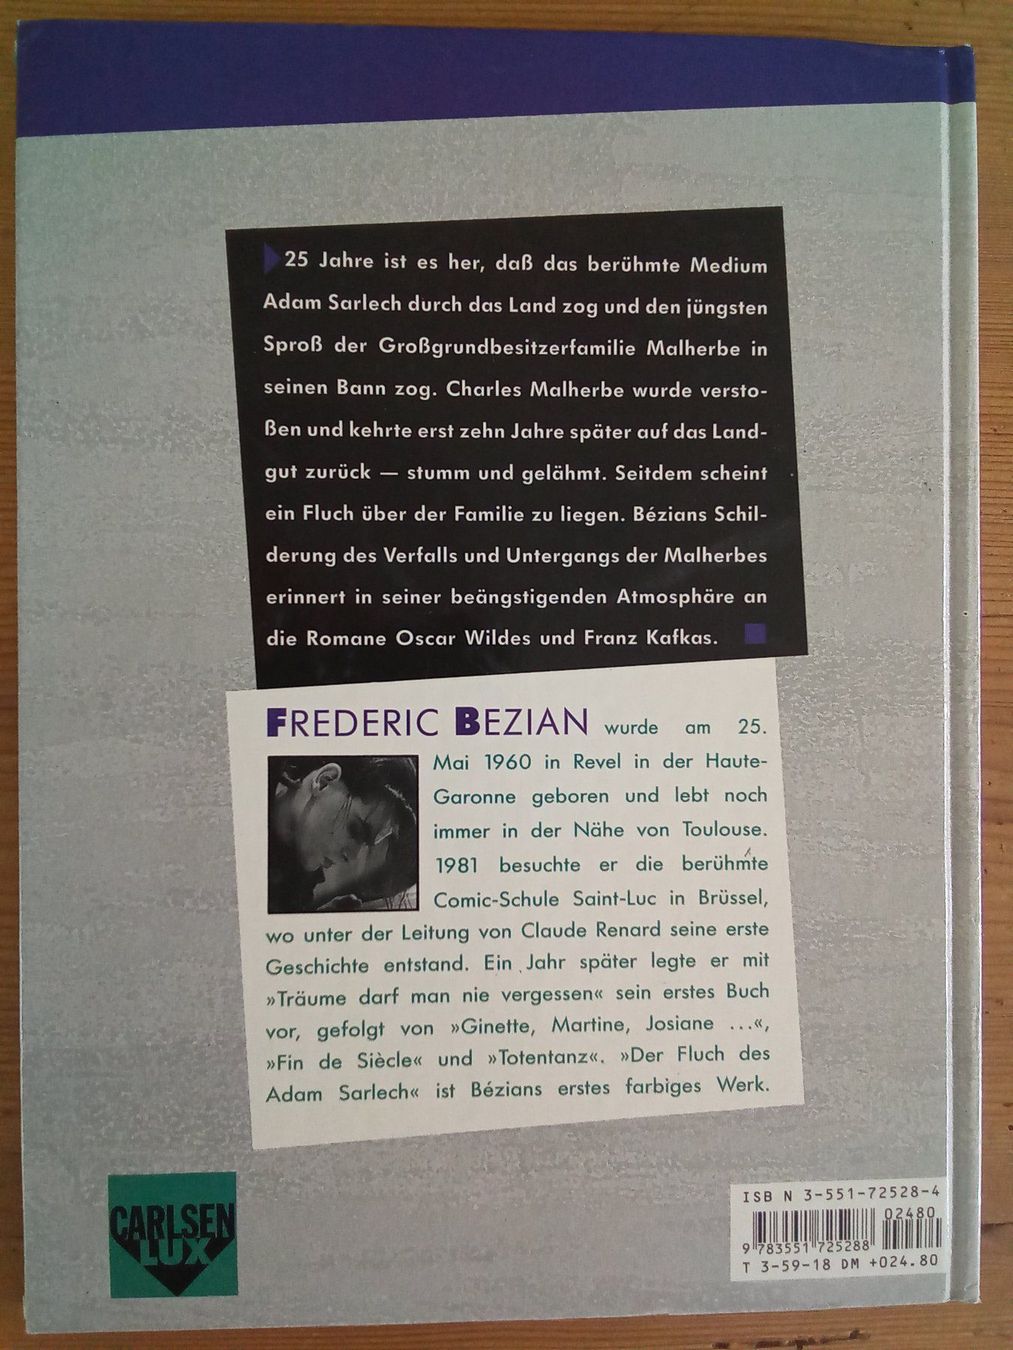 25 Jahre ist es her, daß das berühmte Medium
Adam Sarlech durch das Land zog und den jüngsten
Sproß der Großgrundbesitzerfamilie Malherbe in
seinen Bann zog. Charles Malherbe wurde versto-
ßen und kehrte erst zehn Jahre später auf das Land-
gut zurück — stumm und gelähmt. Seitdem scheint
ein Fluch über der Familie zu liegen. Bézians Schil-
derung des Verfalls und Untergangs der Malherbes
erinnert in seiner beängstigenden Atmosphäre an
die Romane Oscar Wildes und Franz Kafkas.
FREDERIC BEZIAN wurde am 25.
Mai 1960 in Revel in der Haute-
Garonne geboren und lebt noch
immer in der Nähe von Toulouse.
1981 besuchte er die berühmte
Comic-Schule Saint-Luc in Brüssel,
wo unter der Leitung von Claude Renard seine erste
Geschichte entstand. Ein Jahr später legte er mit
»Träume darf man nie vergessen« sein erstes Buch
vor, gefolgt von »Ginette, Martine, Josiane ...«,
»Fin de Siècle« und »Totentanz«. »Der Fluch des
Adam Sarlech« ist Bézians erstes farbiges Werk.
CARLSEN
LUX
ISB N 3-551-72528-4
02480
9 783551 725288
T 3-59-18 DM +024.80